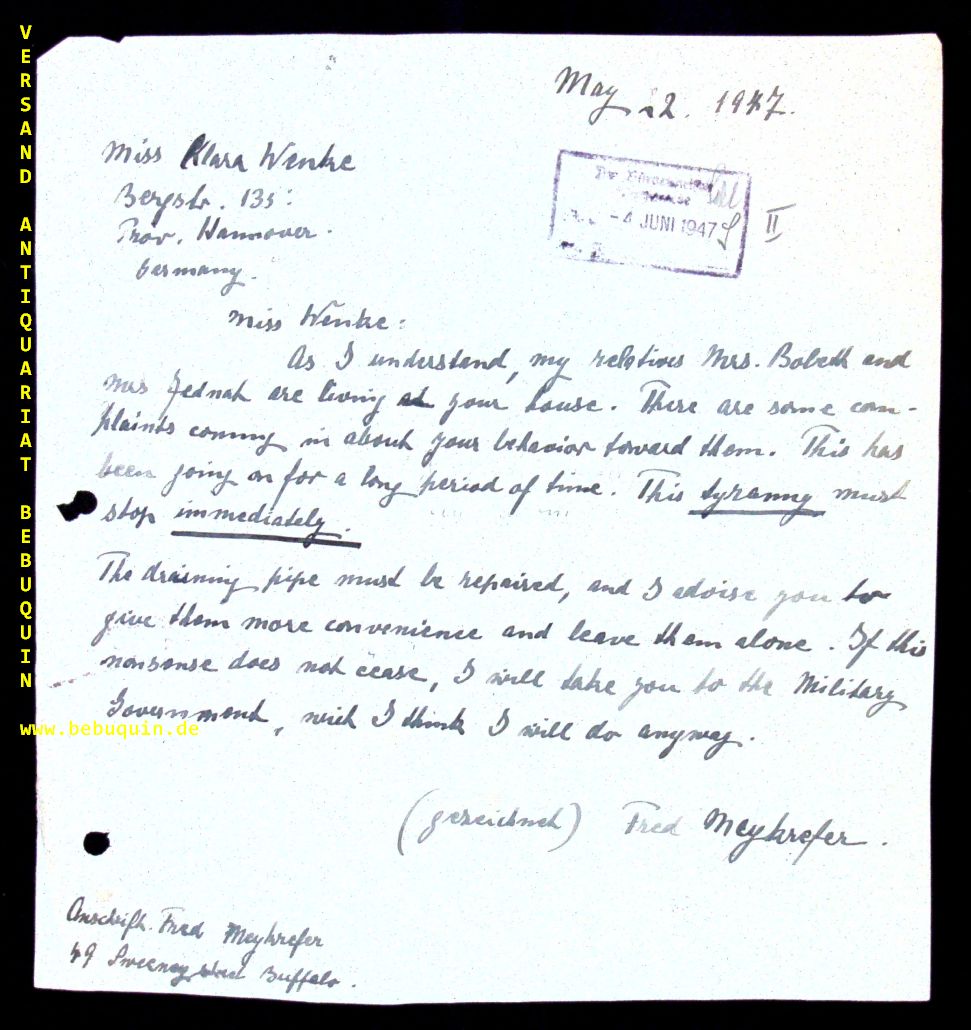 May 22. 1947.
Miss Klara Wenke
Bergstr. 135:
Prov. Hannover.
Germany.
- 4. JUNI 1947
II
Miss Wenke:
As I understand, my relatives Mrs. Bobeth and
Mrs Jednat are living at your house. There are some com-
plaints coming in about your behavior torward them. This has
been going on for a long period of time. This tyranny must
stop immediately.
The draining pipe must be repaired, and I advise you to
give them more convenience and leave them alone. If this
nonsense does not cease, I will take you to the Military
Government, wich I think I will do anyway.
(gezeichnet) Fred Meyhrefer.
Anschrift. Fred Meyhrefer
49 Sweeney street Buffalo.
VERSAND ANTIQUARIAT BEBUQUIN
www.bebuquin.de